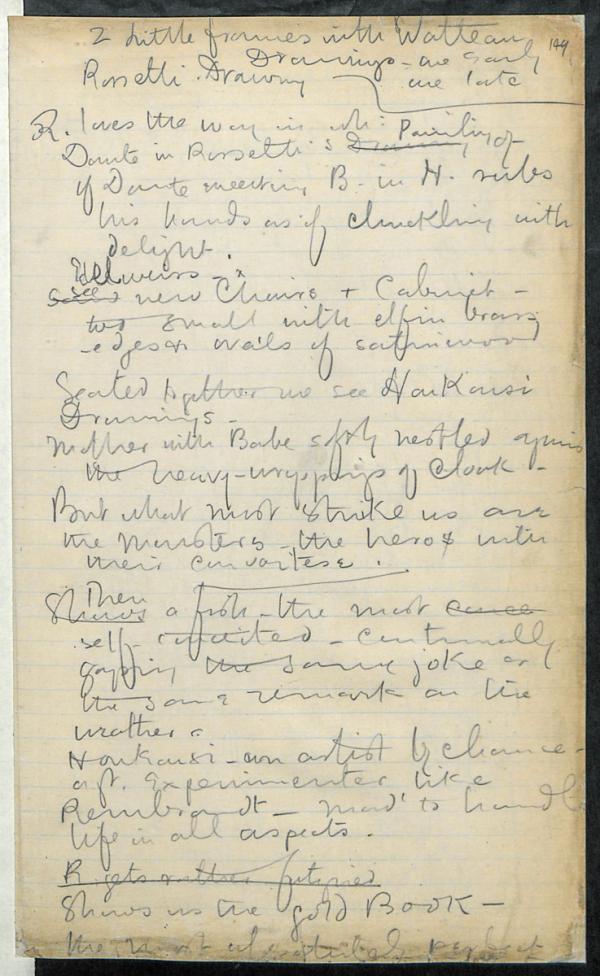 2 little frames with Watteau 149
Drawings - one early
Rossetti Drawing one late
R. loves the way in wh: Painting of
Dante in Rossetti's Drawing of
of Dante meeting B. in H. rubs
his hands as if chuckling with
delight.
see new Chairs + Cabinet -
two small with elfin brass
edges & ovals of satinwood
Seated together we see HonKousi
Drawings -
Mother with Babe softly nestled agains
the heavy-wrappings of Cloak -
But what most strike us are
the Monsters - the heros with
their
Then
Shows a fish - the most
self- - continually
the same joke or
the same remark on the
weather
Honkousi - an artist by chance -
a gt. Experimenter like
Rembrandt - mad to handle
life in all aspects.
R gets rather fatigued
Shows us the gold BOOK -
the most absolutely perfect